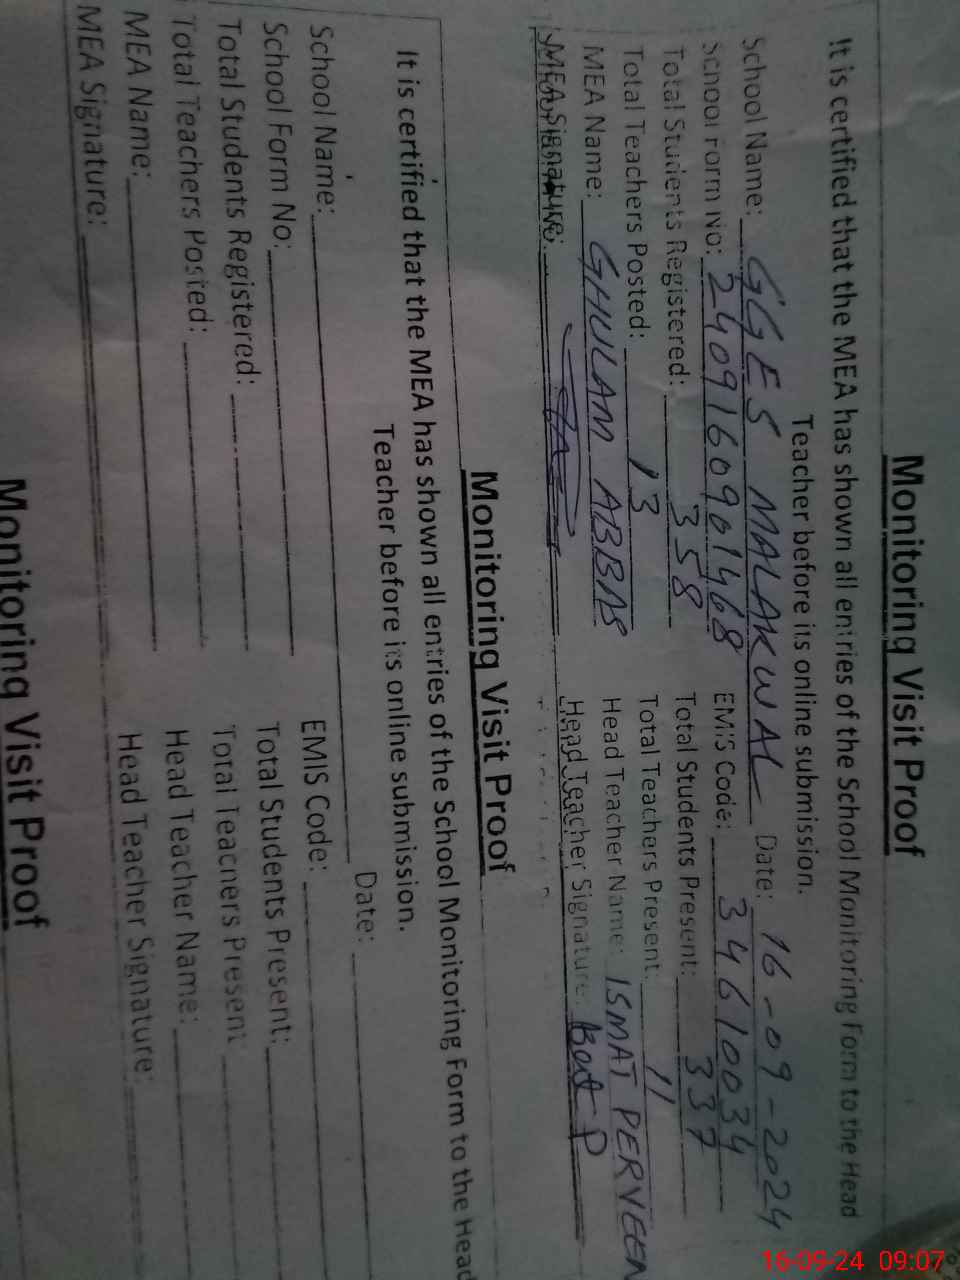 Monitoring Visit Proof
It is certified that the MEA has shown all entries of the School Monitoring Form to the Head
Teacher before its online submission.
School Name: GGES MALAKWAL Date: 16-09-2024
School Form No: 2409160901468 EMIS Code: 34610034
Total Students Registered: 358 Total Students Present: 337
Total Teachers Posted: 13 Total Teachers Present: 11
MEA Name: GHULAM ABBAS Head Teacher Name: ISMAT PERVEEN
MEA Signature: Head Teacher Signature:
Monitoring Visit Proof
It is certified that the MEA has shown all entries of the School Monitoring Form to the Head
Teacher before its online submission.
School Name: Date:
School Form No: EMIS Code:
Total Students Registered: Total Students Present:
Total Teachers Posted: Total Teachers Present:
MEA Name: Head Teacher Name:
MEA Signature: Head Teacher Signature:
Monitoring Visit Proof
16-09-24 09:07